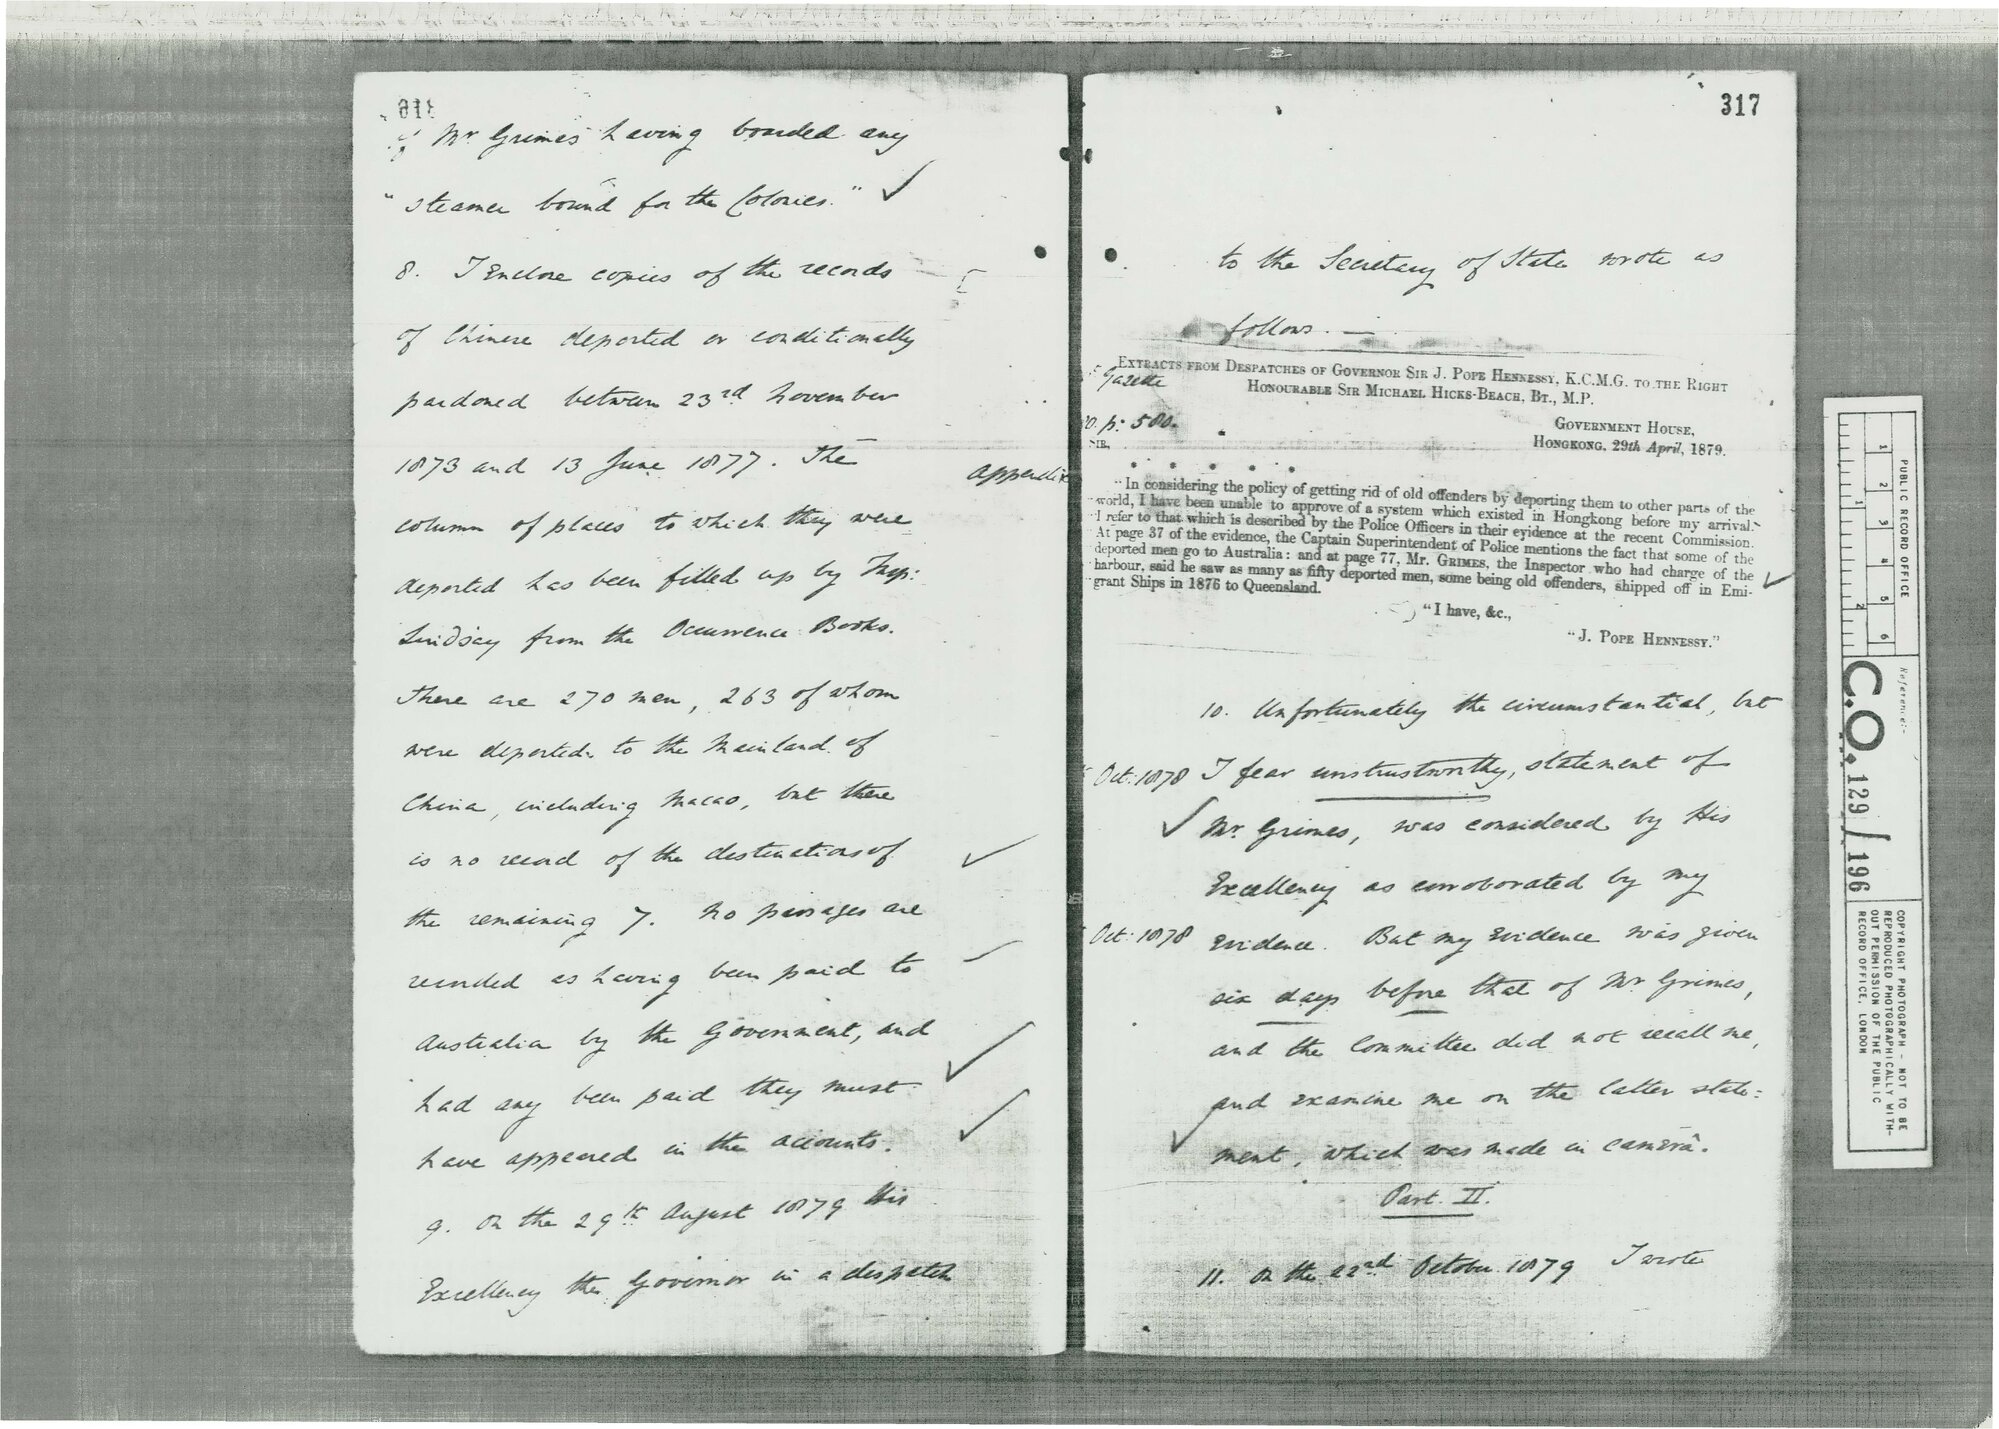 " of Mr Grimes having boarded any
" steamer bound for the Colonies."
8. I Enclose copies of the records
of Chinese deported or conditionally
pardoned between 23rd November
1873 and 13 June 1877. The
Appendix
column of places to which they were
deported has been filled up by Insp:
Lindsay from the Occurrence Books.
There are 270 men, 263 of whom
were deported to the Mainland of
China, including Macao, but there
is no record of the destination of
the remaining 7. No passages are
recorded as having been paid to
Australia by the Government, and
had any been paid they must
have appeared in the accounts.
9. On the 29th August 1879 His
Excellency the Governor in a despatch
317
to the Secretary of State wrote as
follows. —
EXTRACTS FROM DESPATCHES OF GOVERNOR SIR J. POPE HENNESSY, K.C.M.G. TO THE RIGHT
HONOURABLE SIR MICHAEL HICKS-BEACH, BT., M.P.
Gazette
p: 580.
GOVERNMENT HOUSE,
HONGKONG, 29th April, 1879.
SIR,
* * * * * *
"In considering the policy of getting rid of old offenders by deporting them to other parts of the
world, I have been unable to approve of a system which existed in Hongkong before my arrival.
I refer to that which is described by the Police Officers in their evidence at the recent Commission.
At page 37 of the evidence, the Captain Superintendent of Police mentions the fact that some of the
deported men go to Australia: and at page 77, Mr. GRIMES, the Inspector who had charge of the
harbour, said he saw as many as fifty deported men, some being old offenders, shipped off in Emi-
grant Ships in 1876 to Queensland.
"I have, &c.,
"J. POPE HENNESSY."
10. Unfortunately the circumstantial, but
Oct: 1878
I fear unstrustworthy, statement of
Mr. Grimes, was considered by His
Excellency as corroborated by my
Oct: 1878
Evidence. But my Evidence was given
six days before that of Mr Grimes,
and the Committee did not recall me,
and examine me on the latter state:
ment, which was made in camerâ.
Part. II.
11. On the 22nd October 1879 I wrote
PUBLIC RECORD OFFICE
1 2 3 4 5 6
1 2
Reference:-
C.O. 129 / 196
COPYRIGHT PHOTOGRAPH - NOT TO BE
REPRODUCED PHOTOGRAPHICALLY WITH-
OUT PERMISSION OF THE PUBLIC
RECORD OFFICE, LONDON